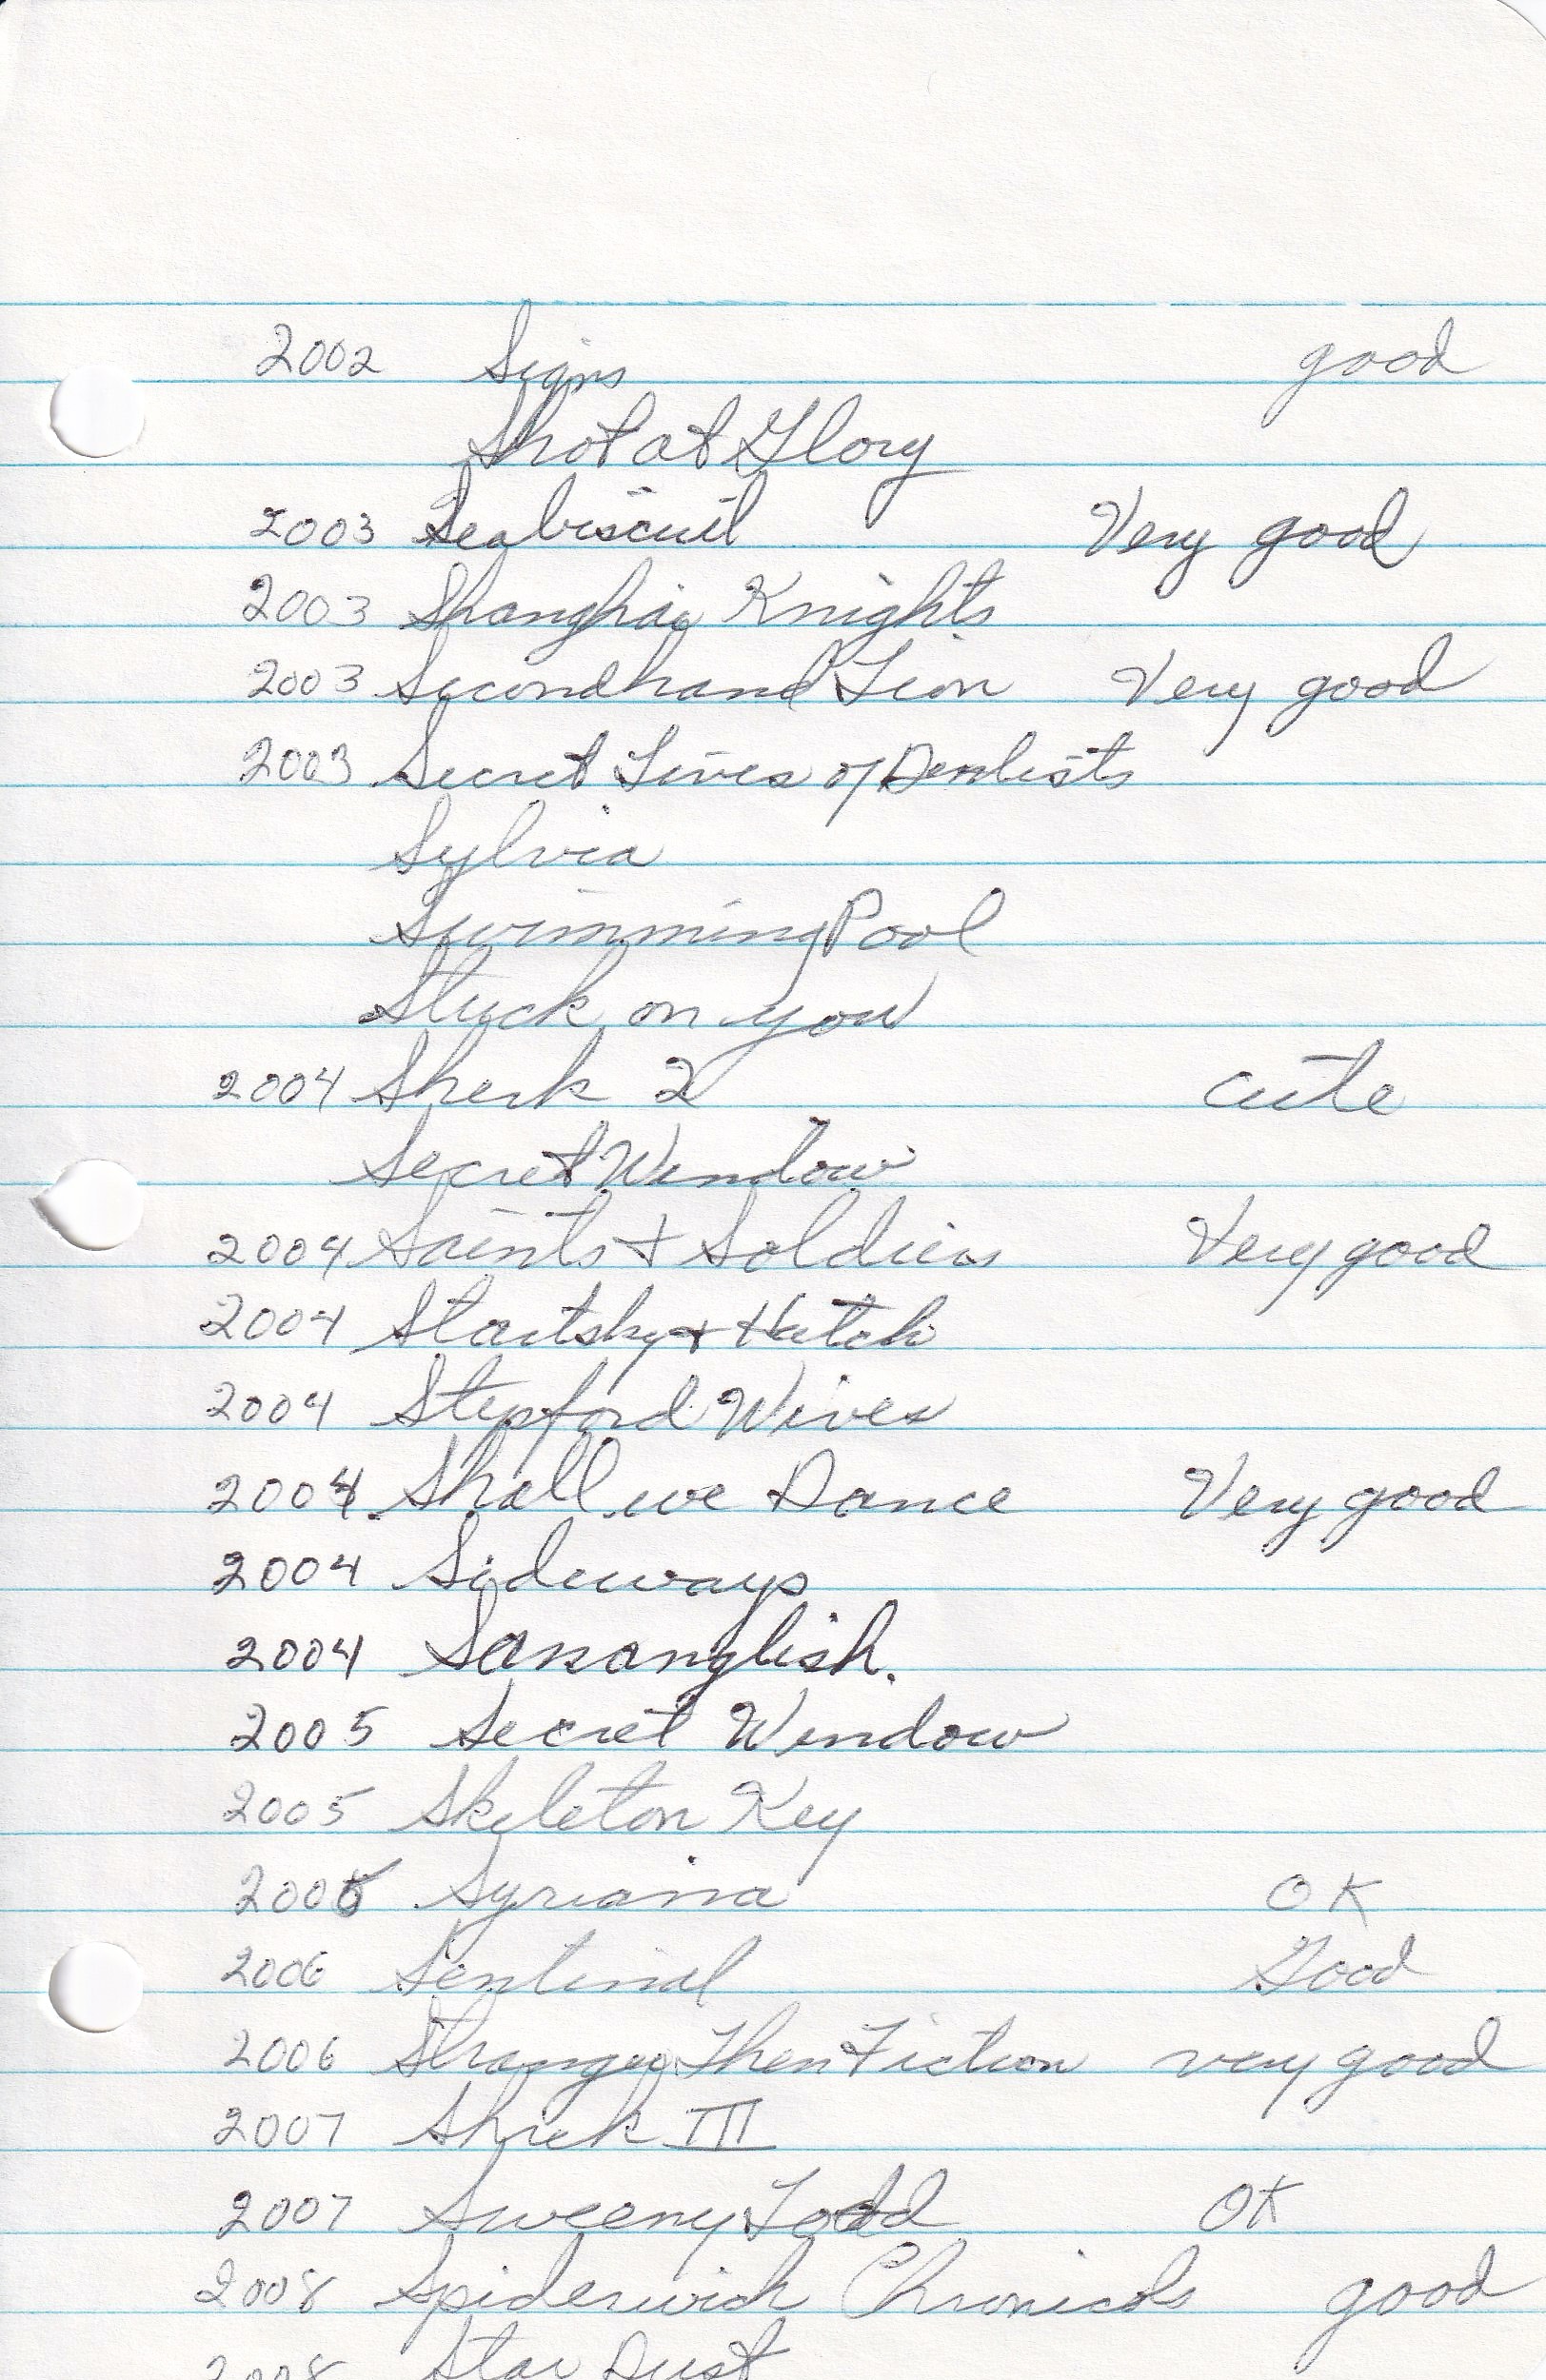 2002 Signs good
Shot at Glory
2003 Seabiscuit Very good
2003 Shanghai Knights
2003 Secondhand Lion Very good
2003 Secret Lives of Dentists
Sylvia
Swimming Pool
Stuck on you
2004 Sherk 2 cute
Secret Window
2004 Saints + Soldiers Very good
2004 Startsky + Hutch
2004 Stepford Wives
2004 Shall we Dance Very good
2004 Sideways
2004 Sananglish.
2005 Secret Window
2005 Skeleton Key
2005 Syriana OK
2006 Sentinal Good
2006 Stranger Then Fiction very good
2007 Shrek III
2007 Sweeny Todd OK
2008 Spiderwick Chronicls good
2008 Star Dust